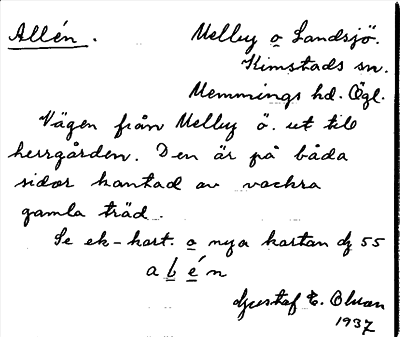 Allén. Melby o Landsjö.
Kimstads sn.
Memmings hd. Ögl.
Vägen från Melby ö. ut till
herrgården. Den är på båda
sidor kantad av vackra
gamla träd.
Se ek-kart. o nya kartan dj 55
a b é n
Gustaf E. Olsson
1937